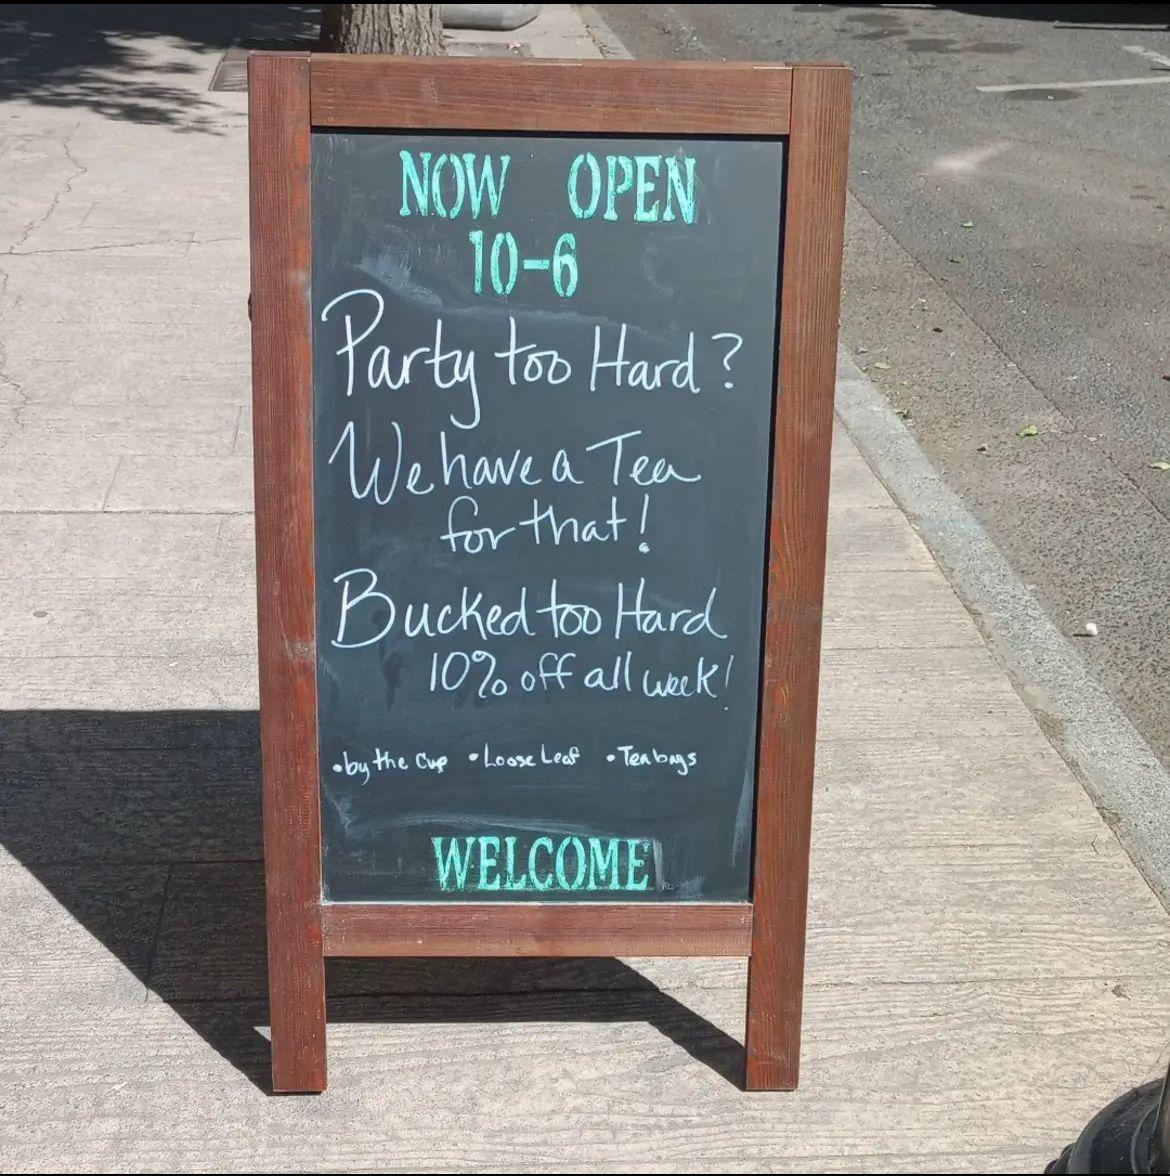 NOW OPEN
10-6
Party too Hard?
We have a Tea
for that!
Bucked too Hard
10% off all week!
•by the Cup •Loose Leaf •Teabags
WELCOME